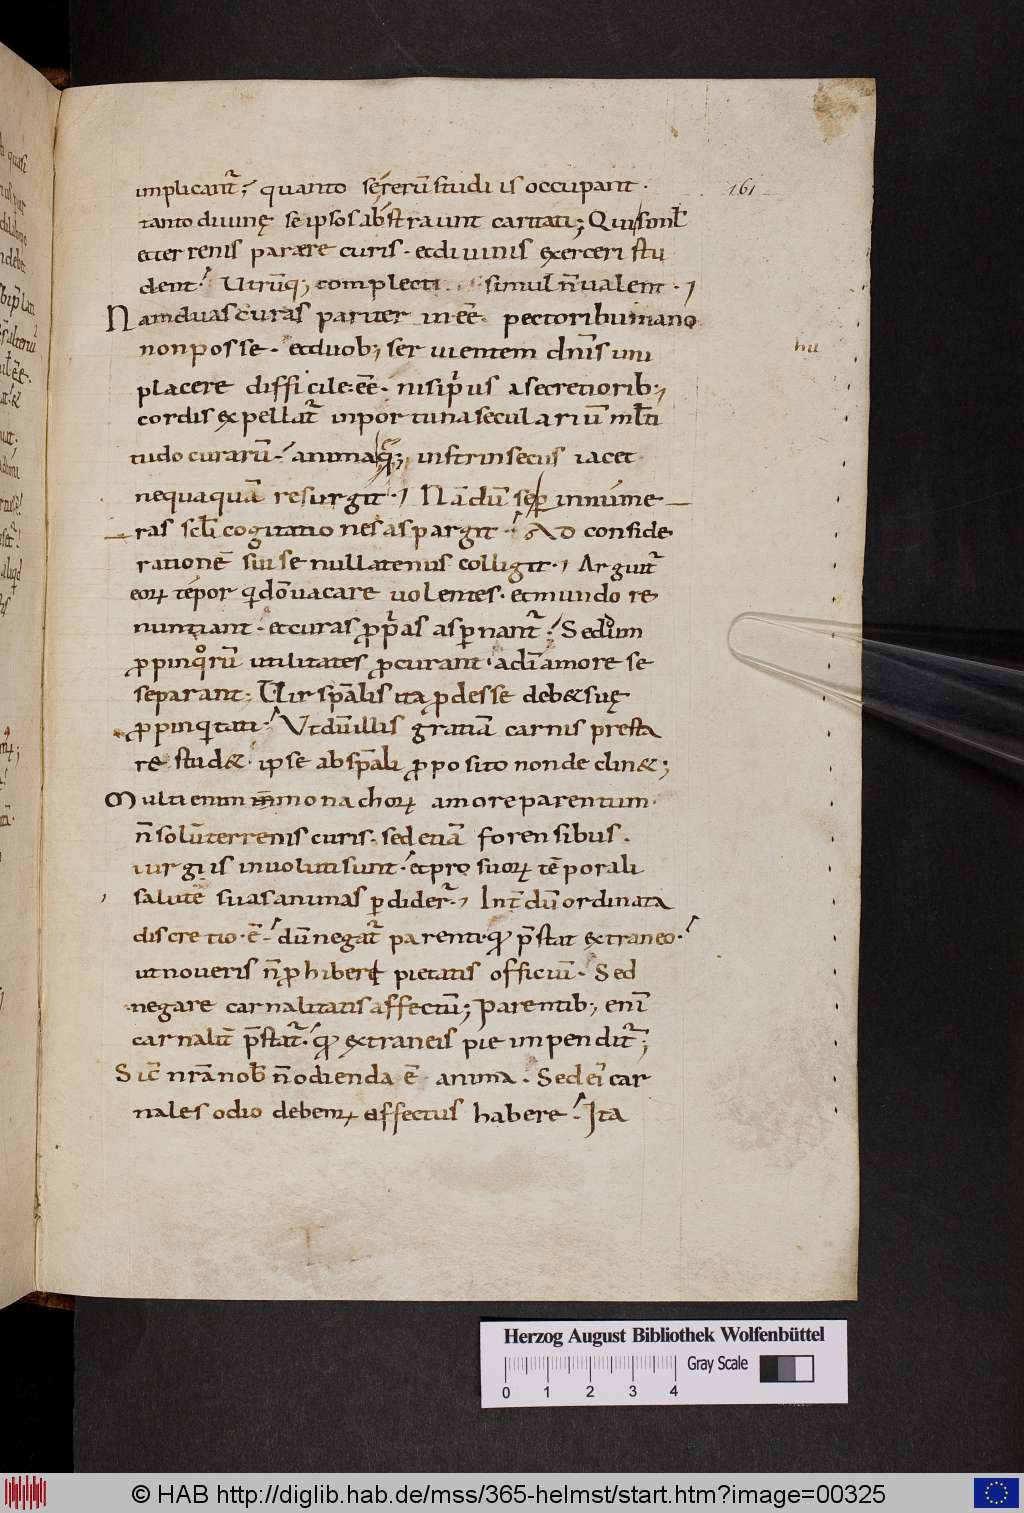 implicant̄; quanto se rerū studiis occupant.
tanto divinę se ipsos abstraunt caritati; Qui simł
et terrenis parære curis. et divinis exerceri stu
dent. Utrūq; complecti simul n̄ valent.
Nam duas curas pariter in eē pectori humano
hu
non posse. et duob; servientem dn̄is uni
placere difficile eē. nisi pius a secretiorib;
cordis expellat̄ inportuna secularium mł̄ti
tudo curarū. anima
intrinsecus iacet
nequaquā resurgit. Nā dū innume
ras scł̄i cogitationes aspargit. Ad conside
rationē sui se nullatenus colligit. Arguit̄
eoꝝ tēpor qidō vacare volentes. et mundo re
nuntiant. et curas ꝓp̄as aspernant̄. Sed dum
ꝓpinqorū utilitates ꝓcurant. a dī amore se
separant; Vir spālis ita ꝓdesse deb& suę
ꝓpinqitati. Ut dū illis gratiā carnis presta
re stud&. ipse ab spāli ꝓposito non declin&;
Multi enim monachoꝝ amore parentum.
n̄ solū terrenis curis. sed etiā forensibus.
iurgiis involuti sunt. et pro suoꝝ tēporali
salute suas animas ꝑdider̄. Int̄dū ordinata
discretio ē. dū negat̄ parenti. qd p̄stat extraneo.
ut noveris n̄ ꝓhiberi pietatis officiū. Sed
negare carnalitatis affectū; Parentib; enī
carnalit̄ p̄stat̄. qd extraneis pie impendit̄;
Sic̄ nr̄a nob̄ n̄ odienda ē anima. Sed ei car
nales odio debemꝰ affectus habere. Ita
161
Herzog August Bibliothek Wolfenbüttel
Gray Scale
0 1 2 3 4
© HAB http://diglib.hab.de/mss/365-helmst/start.htm?image=00325